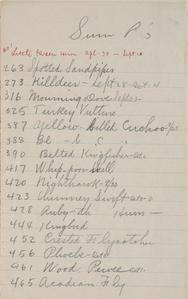 Sum R's
263 Spotted Sandpiper
273 Killdeer - Sept
316 Mourning Dove Sept
325 Turkey Vulture
387 Yellow Billed Cuckoo
388 Bl - " C "
390 Belted Kingfisher
417 Whip-poor-will
420 Nighthawk
423 Chimney Swift
428 Ruby-th Hum -
444 Kingbird
452 Crested Flycatcher
456 Phoebe
461 Wood Pewee
465 Acadian Fly